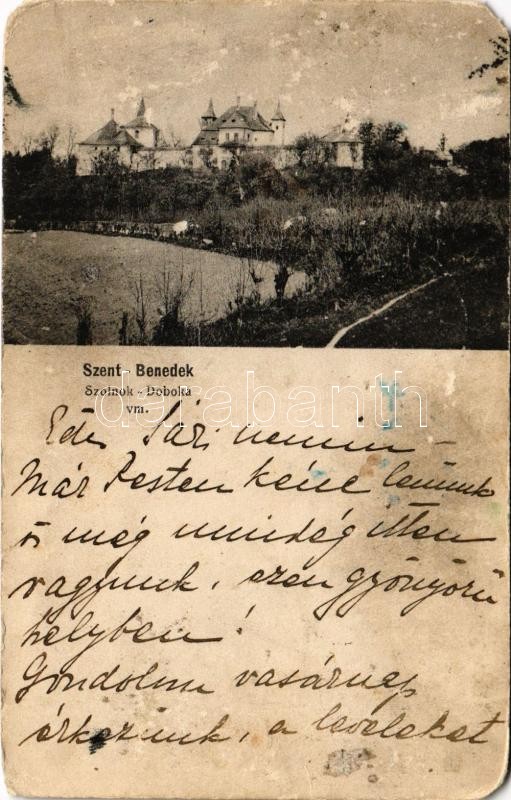 Szent-Benedek
Szolnok-Doboka
vm.
darabanth
Édes Sári néném –
Már Pesten kéne lennünk
s még mindég itten
vagyunk, ezen gyönyörü
helyben!
Gondolom vasárnap
érkezünk, a leveleket